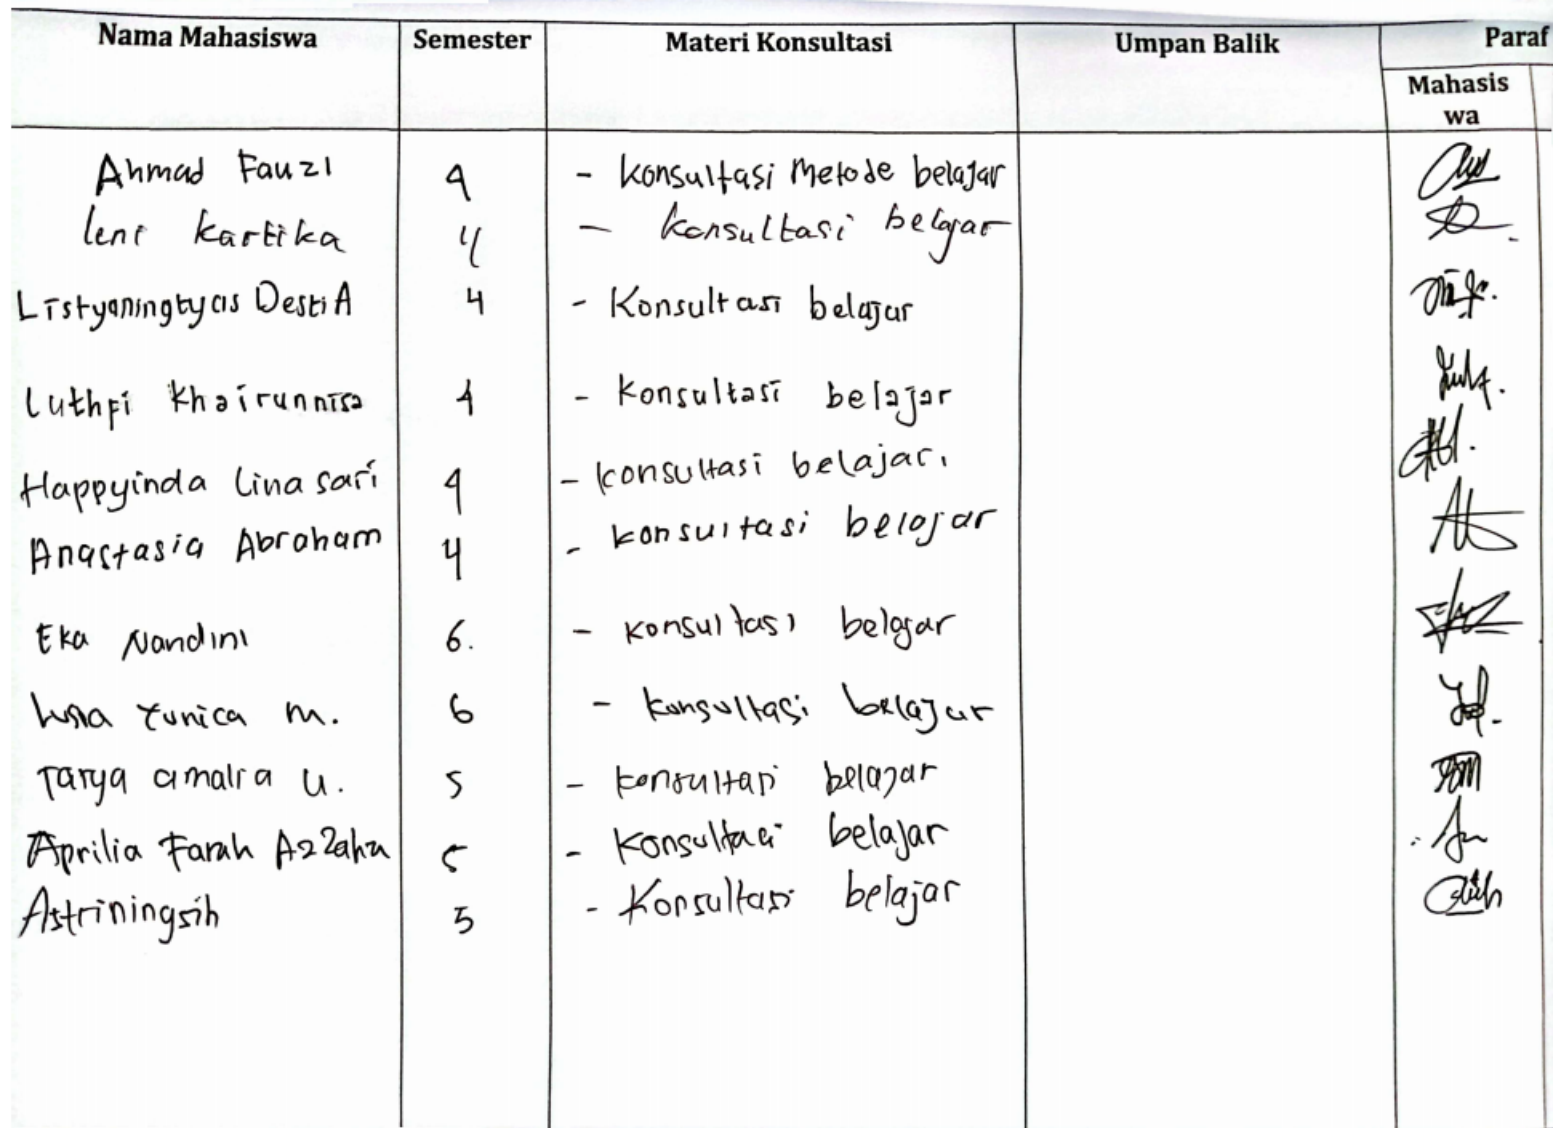 Nama Mahasiswa Semester Materi Konsultasi Umpan Balik Paraf
Mahasis
wa
Ahmad Fauzi 4 - konsultasi Metode belajar
leni kartika 4 - konsultasi belajar
Listyaningtyas Desti A 4 - Konsultasi belajar
Luthfi khairunnisa 4 - konsultasi belajar
Happyinda Lina sari 4 - konsultasi belajar.
Anastasia Abraham 4 - konsultasi belajar
Eka Nandini 6. - konsultasi belajar
Yunica M. 6 - konsultasi belajar
amalia U. 5 - konsultasi belajar
Aprilia Farah Azzahra 5 - Konsultasi belajar
Astriningsih 5 - Konsultasi belajar